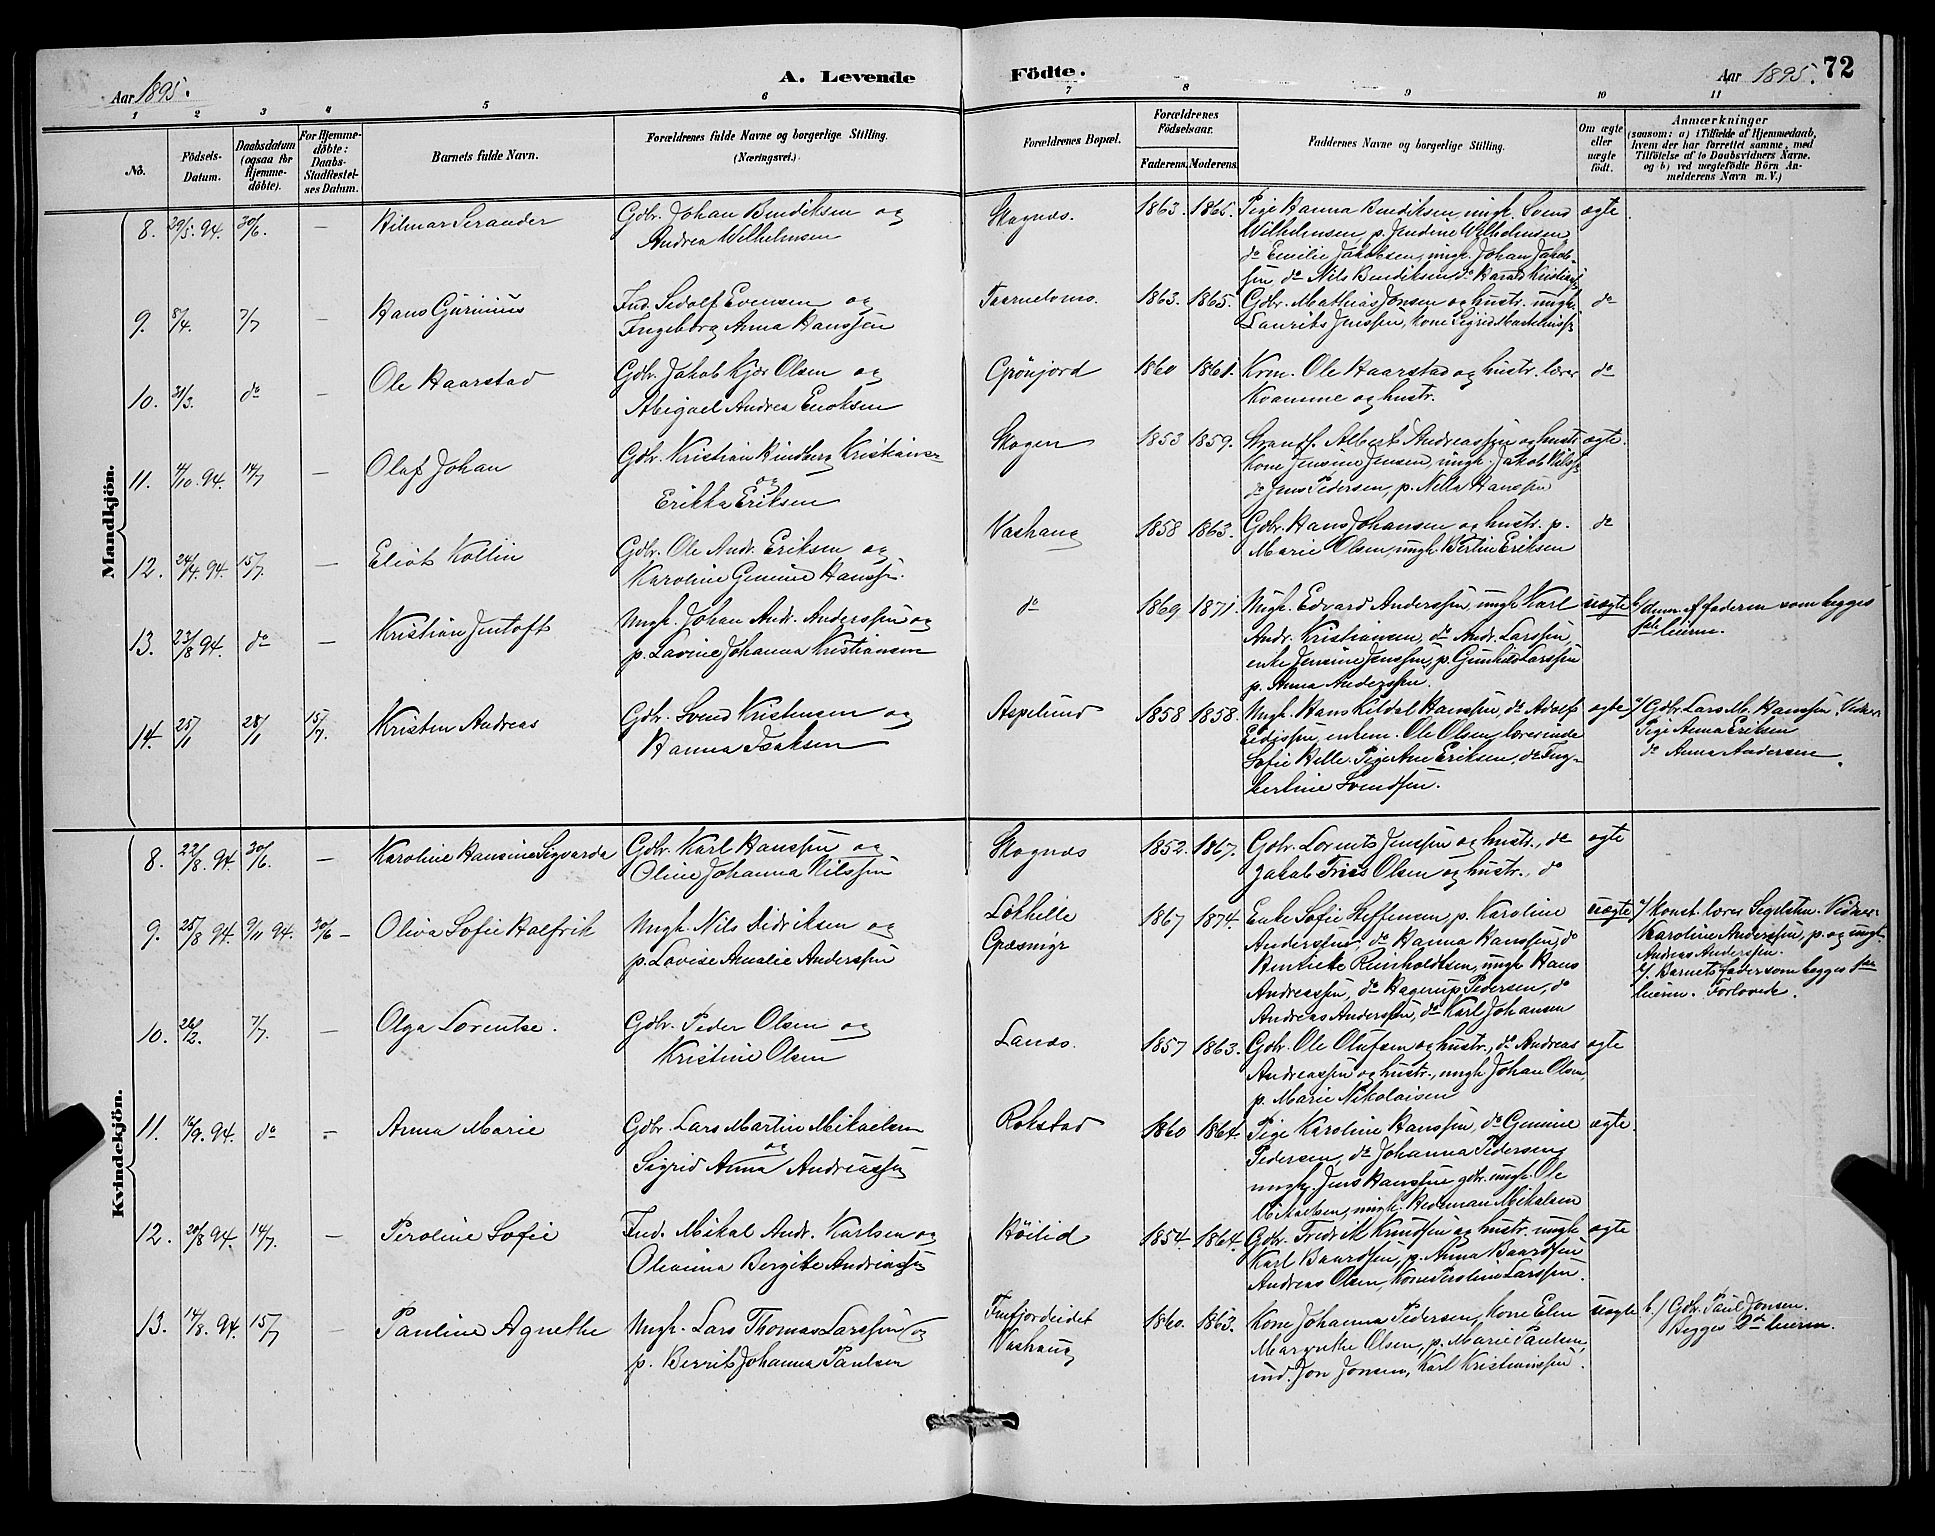 Aar 1895.
A. Levende
Födte.
Aar 1895. 72
1 2 3 4 5 6 7 8 9 10 11
No.
Födsels-
Datum.
Daabsdatum
(ogsaa for
Hjemme-
döbte).
For Hjemme-
döbte:
Daabs-
Stadfæstel-
ses Datum.
Barnets fulde Navn.
Forældrenes fulde Navne og borgerlige Stilling.
(Næringsvei.)
Forældrenes Bopæl.
Forældrenes
Födselsaar.
Faderens. Moderens.
Faddernes Navne og borgerlige Stilling.
Om ægte
eller
uægte
født.
Anmærkninger
(saasom: a) i Tilfælde af Hjemmedaab,
hvem der har forrettet samme, med
Tilföielse af to Daabsvidners Navne,
og b) ved uægtefödte Börn An-
melderens Navn m. V.)
Mandkjön.
8. 29/5. 94. 30/6. — Hilmar Serander
Gdbr. Johan Bendiksen og
Andrea Wilhelmsen
Skognæs. 1863. 1865.
Pige Hanna Bendiksen, ungk. Svend
Wilhelmsen, p. Jendine Wilhelmsen
do Emilie Jakobsen, ungk. Johan Jakob-
sen do Nils Bendiksen do Harald
ægte
9. 8/4. 7/7 — Hans Gurinius
Ind. Sedolf Evensen og
Ingeborg Anna Hanssen
1863. 1865.
Gdbr. Mathias Jonsen og hustr. ungk.
Laurits Jenssen, kone Sigrid
do
10. 31/3. do — Ole Haarstad
Gdbr. Jakob Kjær Olsen og
Abigael Andrea Enoksen
Grönjord 1860 1861.
Krm. Ole Haarstad og hustr. lærer
Kvamme og hustr.
do
11. 4/10. 94. 14/7 — Olaf Johan
Gdbr. Kristian Hindberg Kristianse-
og
Erikka Eriksen
Skogen 1853 1859.
Strands. Albert Andreassen og hustr.
Kone Jensine Jensen, ungk. Jakob
do Jens Pedersen, p. Nella Hanssen
ægte.
12. 24/4. 94. 15/7. — Eliot Kollin
Gdbr. Ole Andr. Eriksen og
Karoline Gemine Hanssen.
Vashaug 1858 1863.
Gdbr. Hans Johansen og hustr. p.
Marie Olsen, ungk. Bertin Eriksen
do
13. 23/8 94. do — Kristian Jentoft
Ungk. Johan Andr. Anderssen og
p. Lavine Johanna Kristiansen
do 1869 1871.
Ungk. Edvard Anderssen, ungk. Karl
Andr. Kristiansen, do Andr. Larssen
enke Jensine Jenssen, p. Larssen
p. Anna Anderssen.
uægte
b/ af faderen som begges
leierm.
14. 25/1 28/1 15/7. Kristen Andreas
Gdbr. Svend Kristensen og
Hanna Isaksen
Aspelund 1858 1858.
Ungk. Hans Kildal Hanssen, do Adolf
Eedissen, enkem. Ole Olsen, lærerinde
Sofie Helle. Pige Ane Eriksen, do Ing-
bertine Svendsen.
ægte
a/ Gdbr. Lars M. Hanssen. Vidner
Pige Anna Eriksen
do Anna Andersen.
Kvindekjön.
8. 22/8. 94. 30/6. — Karoline Hansine Sigvarda
Gdbr. Karl Hanssen og
Oline Johanna Nilssen
Skognæs 1852. 1867.
Gdbr. Lorents Jenssen og hustr., do
Jakob Friis Olsen og hustr., do
ægte
9. 25/8 94. 9/11 94. 30/6 — Oliva Sofie Halfrik
Ungk. Nils Didriksen og
p. Lovise Amalie Anderssen
Lokhelle
Græsmyr
1867 1874.
Enke Sofie Steffensen, p. Karoline
Anderssen, do Hanna Hanssen, do
Henrikke Reinholdtsen, ungk. Hans
Andreassen, do Hagerup Pedersen, do
Andreas Anderssen, do Karl Johansen
uægte
a/ konst. lærer Segelsten. Vidner
Karoline Anderssen, p. og ungk.
Andreas Anderssen.
b/. Barnets fader som begges
leierm. Forlovede.
10. 26/2. 7/7. — Olga Lorentse.
Gdbr. Peder Olsen og
Kristine Olsen
Lanæs. 1857 1863.
Gdbr. Ole Olufsen og hustr., do Andreas
Andreassen og hustr., ungk. Johan Olsen,
p. Marie Nikolaisen
ægte
11. 16/9. 94. do — Anna Marie
Gdbr. Lars Martin Mikaelsen
og
Sigrid Anna Andreassen
Rokstad 1860 1864.
Pige Karoline Hanssen, do Gemine
Pedersen, do Johanna Pedersen,
ungk. Jens Hanssen gdbr. ungk. Ole
Mikaelsen, ungk. Hedeman Mikalsen
ægte.
12. 20/8 94. 14/7. — Peroline Sofie
Ind. Mikal Andr. Karlsen og
Oleanna Bergite Andreassen
Höilid 1854. 1864.
Gdbr. Fredrik Knudsen og hustr. ungk.
Karl Baardsen, p. Anna Baardsen
Andreas Olsen, Kone Peroline Larssen.
ægte
13. 14/8. 94. 15/7 — Pauline Agnethe
Ungk. Lars Thomas Larssen og
p. Berrit Johanna Paulsen
Finfjordeidet
Vashaug
1860. 1863.
Kone Johanna Pedersen, kone Elen
Margrethe Olsen, p. Marie Paulsen,
ind. Jon Jonsen, Karl Kristianssen.
uægte
b./ Gdbr. Paul Jonsen.
Begges 2det leierm.